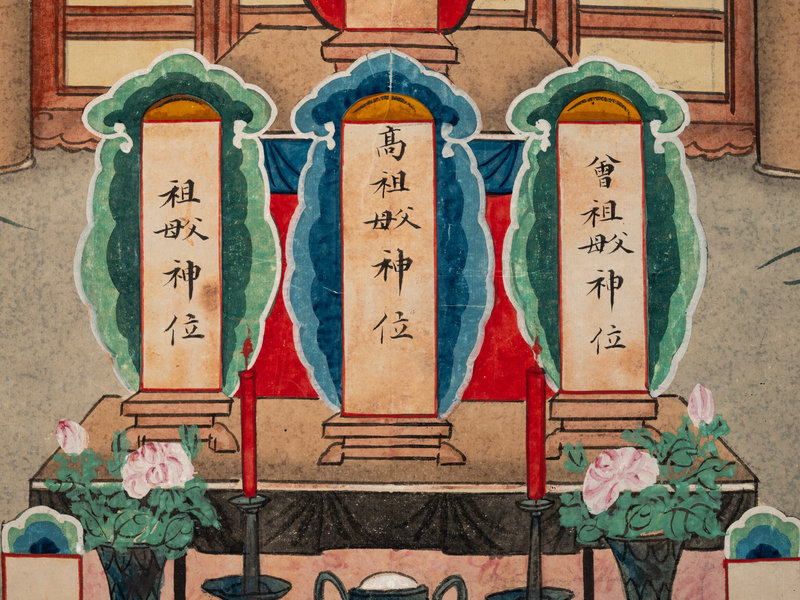 曾祖父母神位
高祖父母神位
祖父母神位